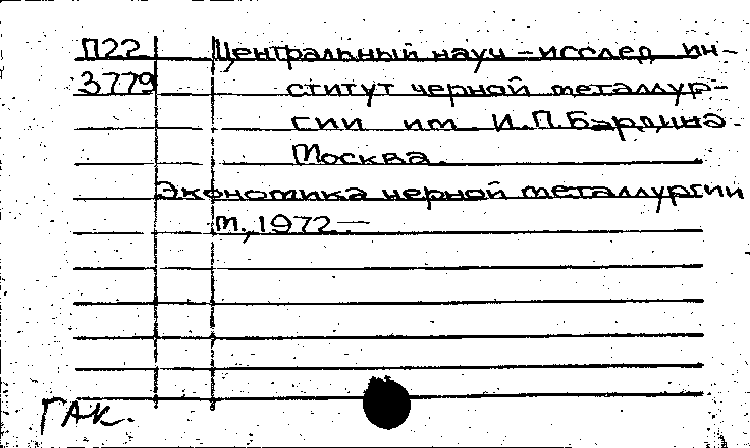 П22 Центральный науч-исслед ин-
3779 ститут черной металлур-
гии им И.П.Бардина.
Москва.
Экономика черной металлургии
т., 1972 —
ГАК.